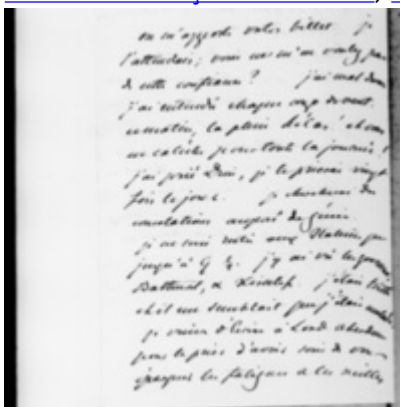 on m'apporte votre billet. je
l'attendais; vous ne m'en voulez pas
de cette confiance ? j'ai mal dormi
j'ai entendu chaque coup de vent.
ce matin, la pluie hélas!
en calèche pour toute la journée !
j'ai prié Dieu, je le prierai vingt
fois le jour. je chercherai des
consolations auprès du génie.
je ne suis resté aux
jusqu'à 9 ½. j'y ai vu le
& j'étais triste
et il me semblait que j'étais
je viens d'écrire à Lord Aberdeen
pour le prier d'avoir soin de vous
épargner les fatigues & les veilles